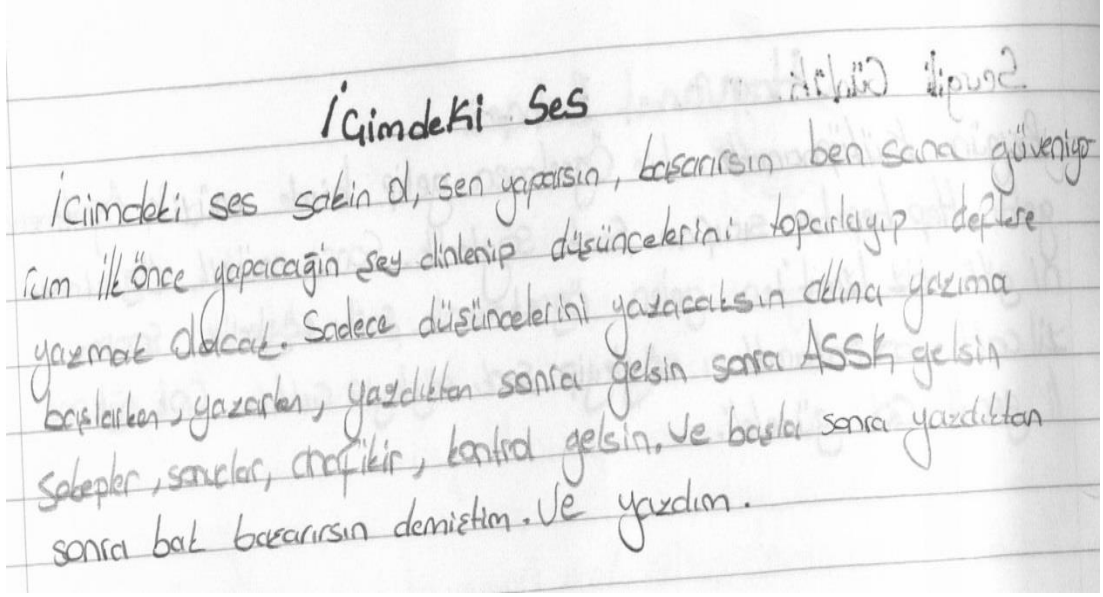 İçimdeki Ses
İçimdeki ses sakin ol, sen yaparsın, başarırsın ben sana güveniyo
rum ilk önce yapacağın şey dinlenip düşüncelerini toparlayıp deftere
yazmak olacak. Sadece düşüncelerini yazacaksın aklına yazıma
başlarken, yazarken, yazdıktan sonra gelsin sonra ASSK gelsin
sebepler, sonuçlar, anafikir, kontrol gelsin. Ve başla sonra yazdıktan
sonra bak başarırsın demiştim. Ve yazdım.